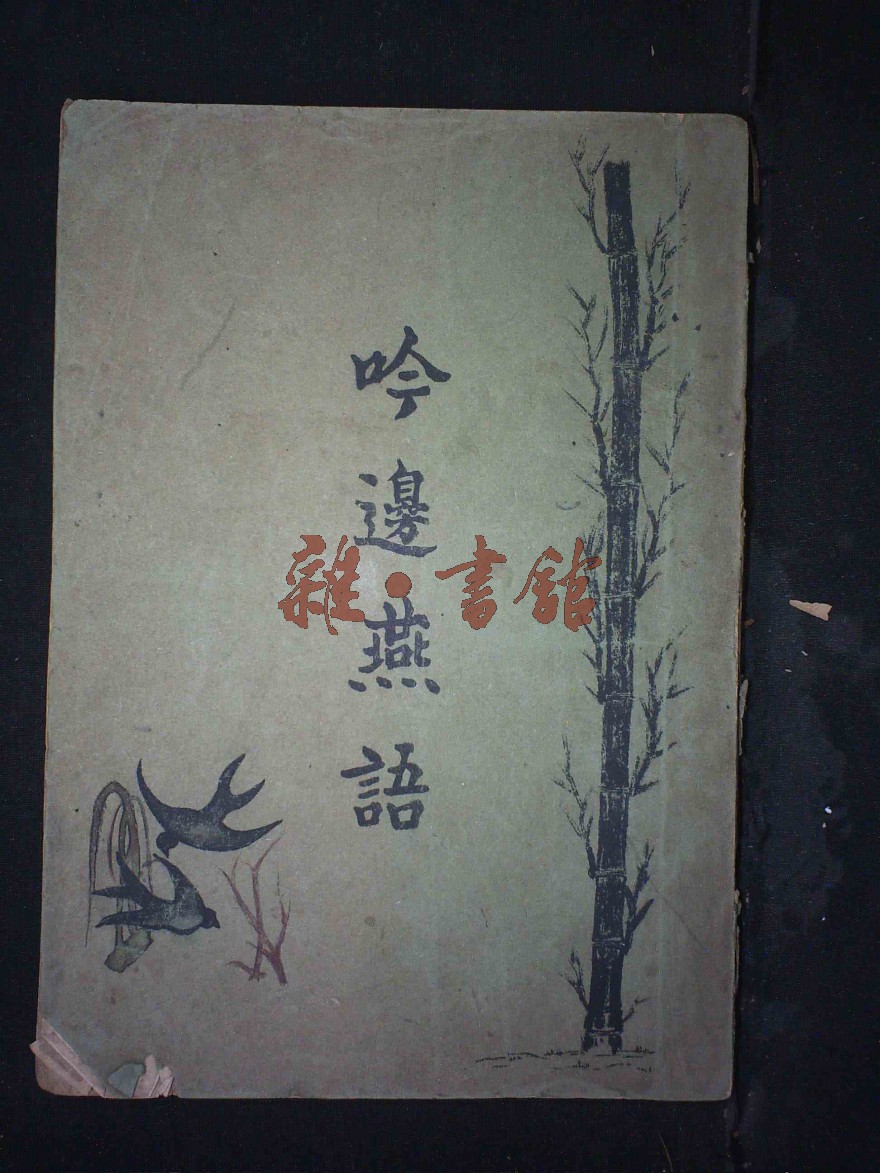 吟邊燕語
雜·書館